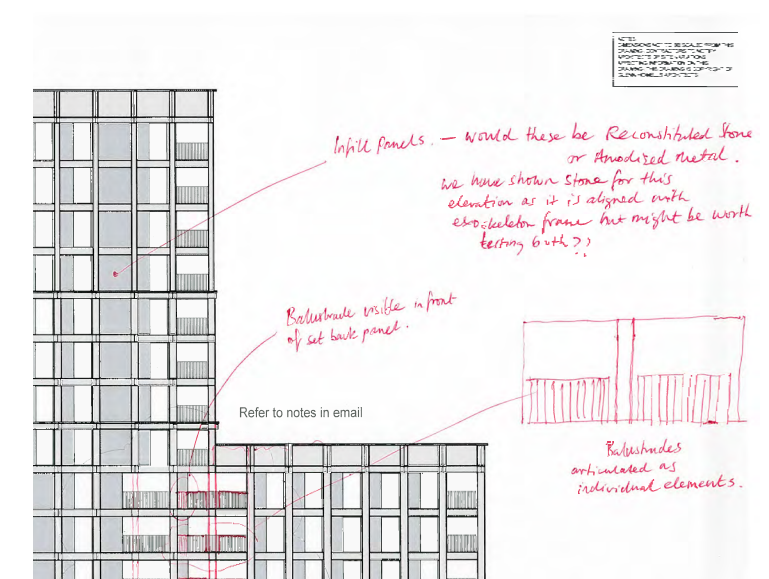 NOTES
DIMENSIONS NOT TO BE SCALED FROM THIS
DRAWING. CONTRACTORS TO NOTIFY
ARCHITECTS OF SITE VARIATIONS
AFFECTING INFORMATION ON THIS
DRAWING. THIS DRAWING IS COPYRIGHT OF
GLENN HOWELLS ARCHITECTS
Infill Panels. — would these be Reconstituted Stone
or Anodized metal.
we have shown stone for this
elevation as it is aligned with
exoskeleton frame but might be worth
testing both??
Balustrade visible in front
of set back panel.
Refer to notes in email
Balustrades
articulated as
individual elements.